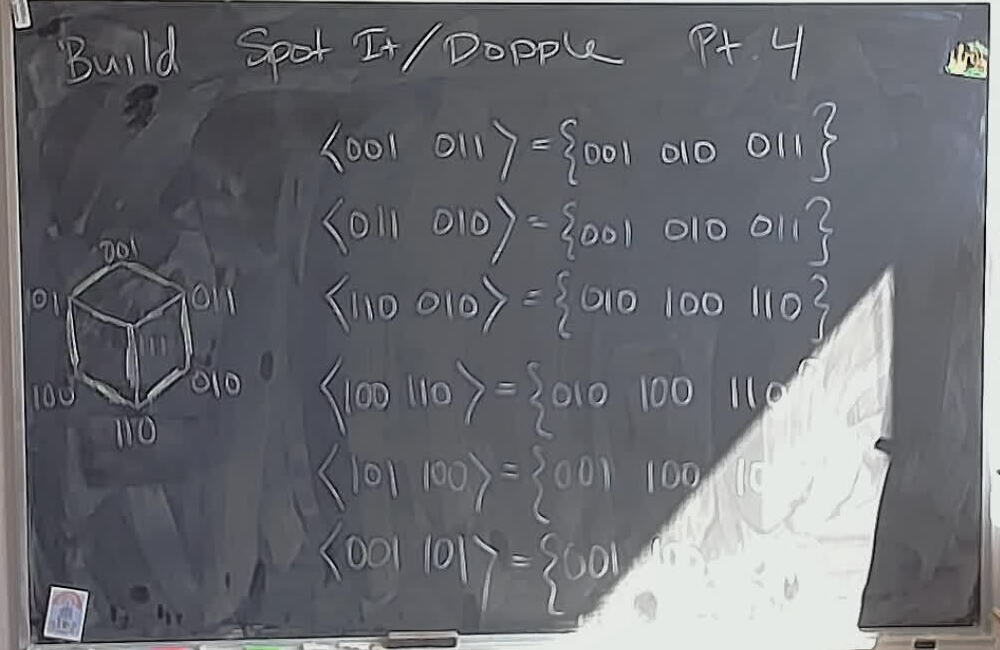 Build Spot It/Dopple Pt. 4
⟨001 011⟩ = {001 010 011}
⟨011 010⟩ = {001 010 011}
⟨110 010⟩ = {010 100 110}
⟨100 110⟩ = {010 100 110
⟨101 100⟩ = {001 100 10
⟨001 101⟩ = {001
001
101 011
111
100 010
110